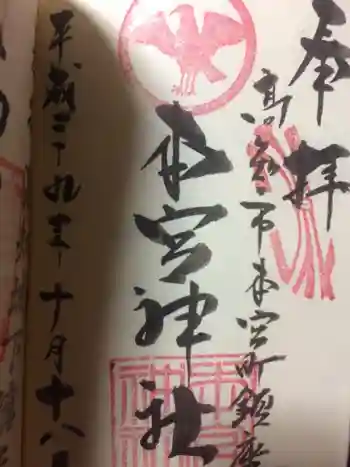 奉拝
高知市本宮町鎮座
本宮神社
平成二十九年十月十八日